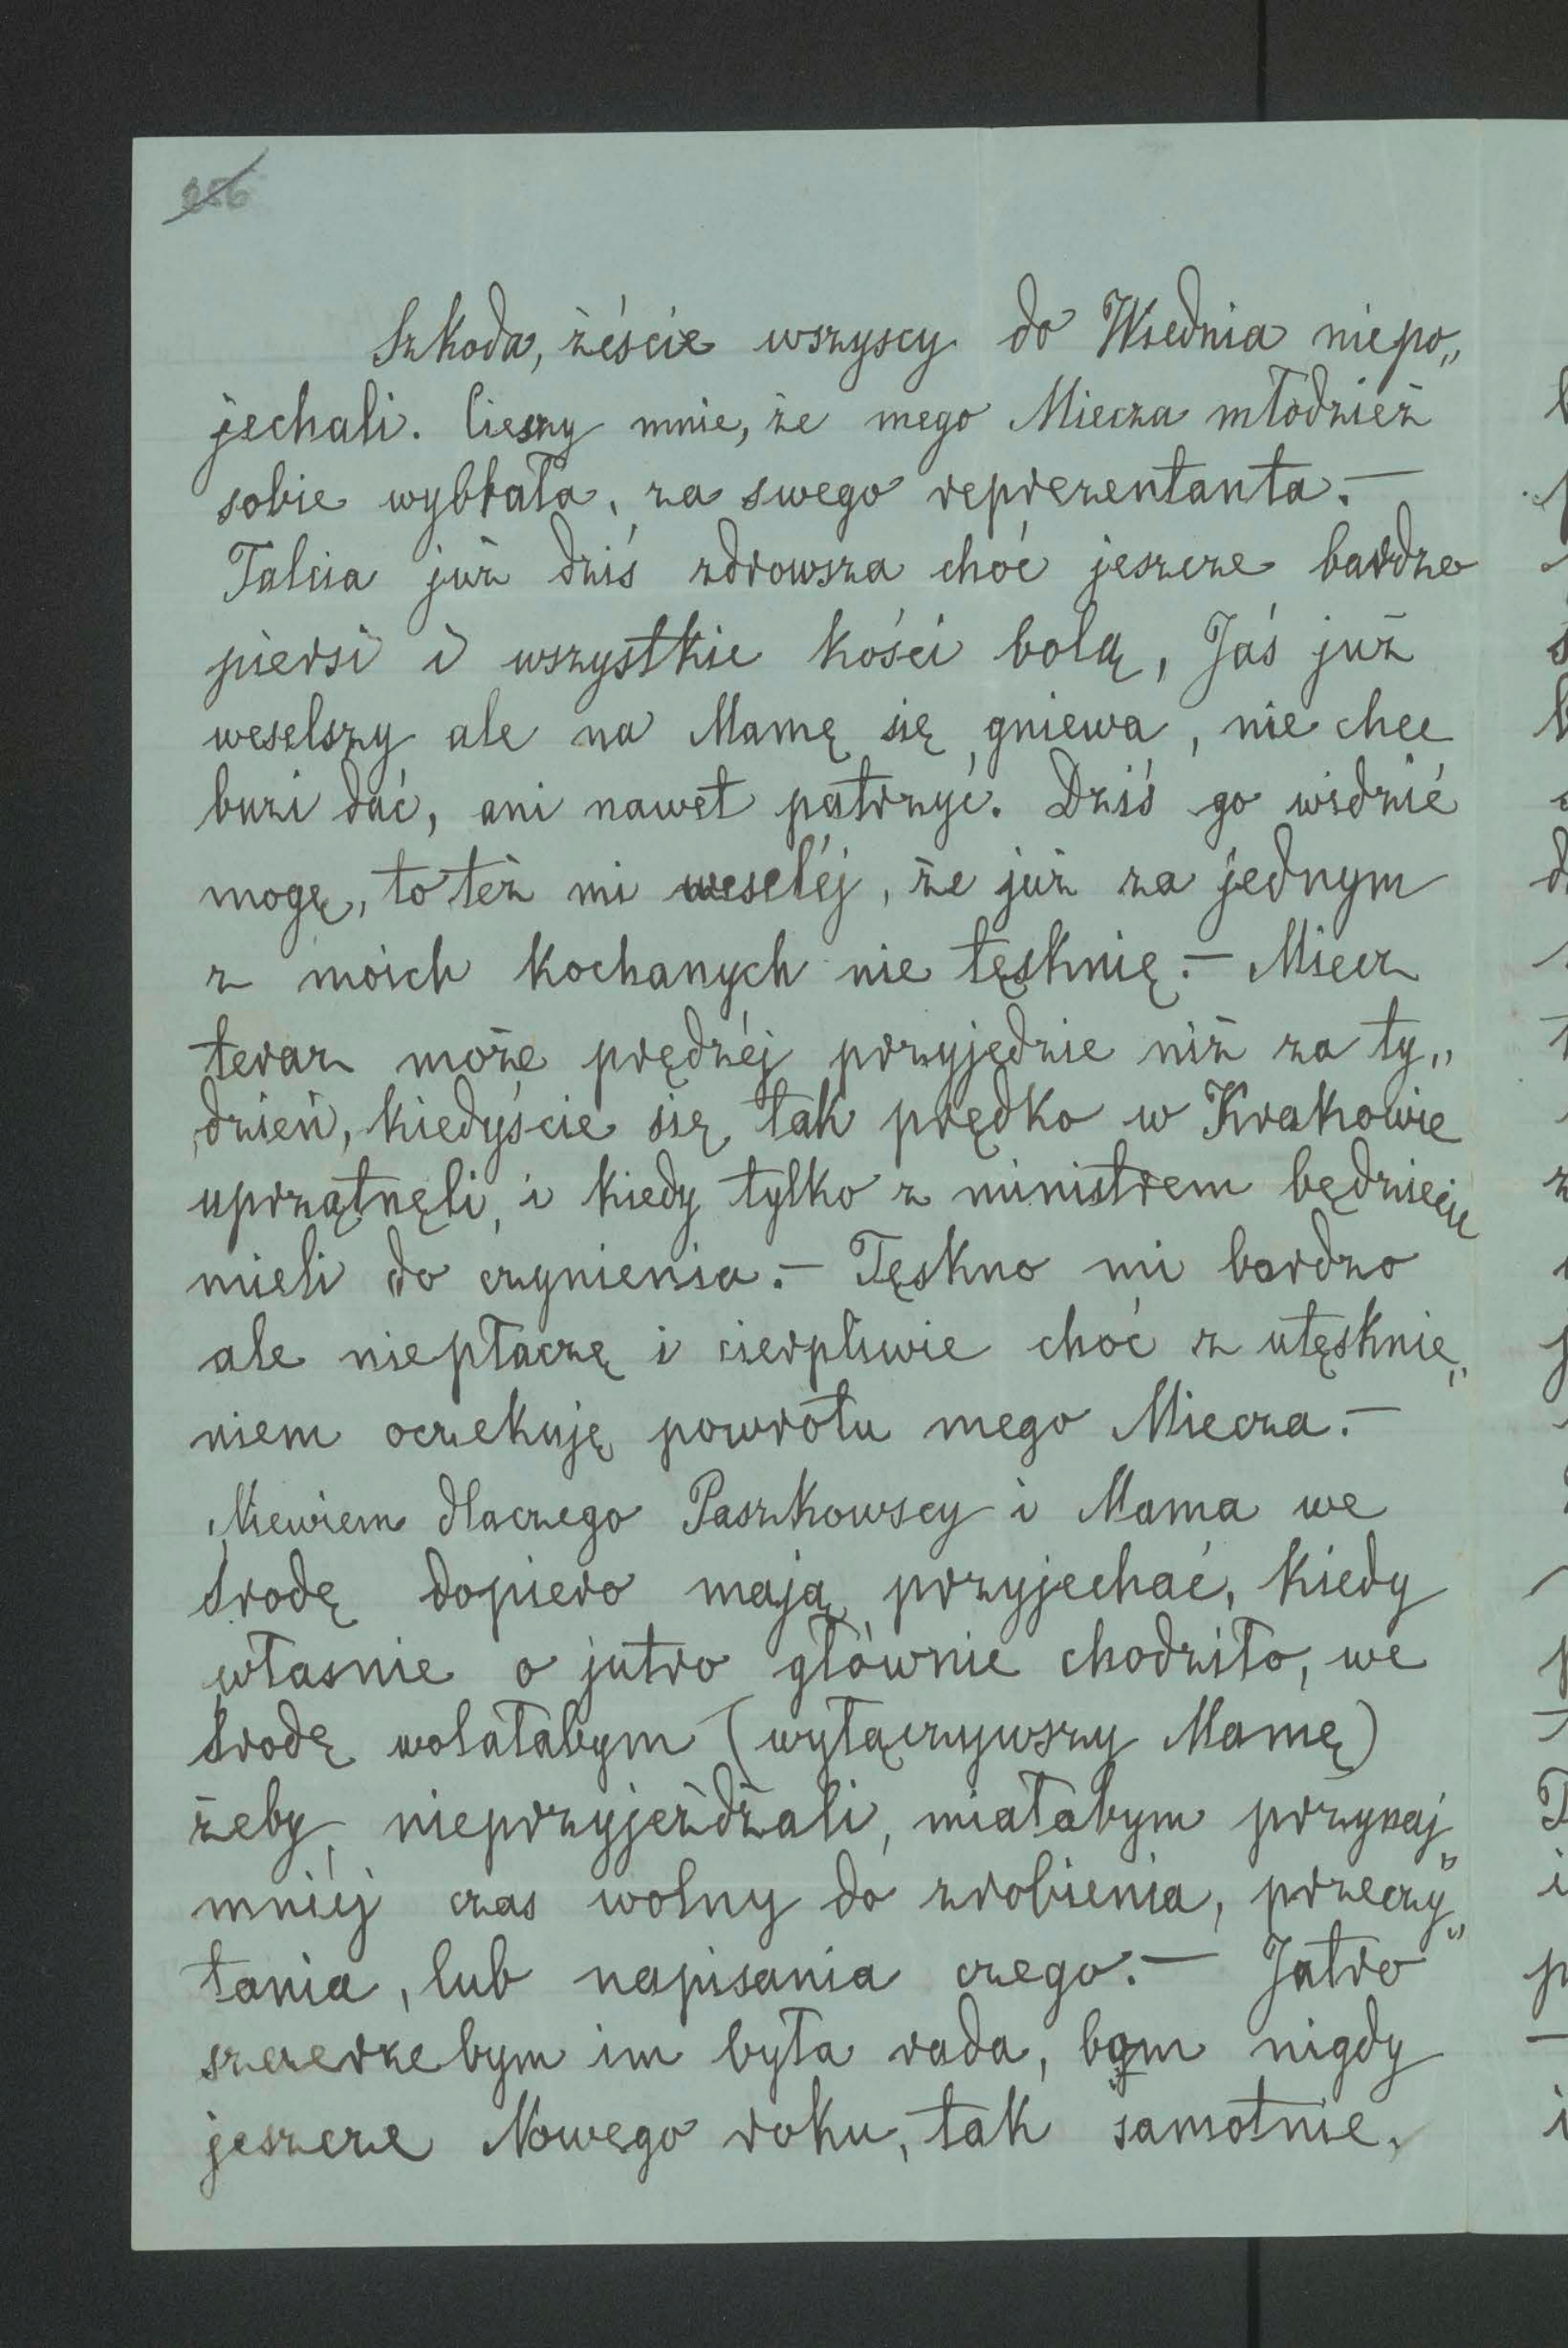 256
Szkoda, żéście wszyscy do Wiednia niepo„
jechali. Cieszy mnie, że mego Miecza młodzież
sobie wybrała, za swego reprezentanta.—
Talcia już dziś zdrowsza choć jeszcze bardzo
piersi i wszystkie kości bolą, Jaś już
weselszy ale na Mamę się gniewa, nie chce
buzi dać, ani nawet patrzyć. Dziś go widzić
mogę, to też mi weseléj, że już za jednym
z moich kochanych nie tęsknię.— Miecz
teraz może prędzéj przyjędzie niż za ty„
dzień, kiedyście się tak prędko w Krakowie
uprzątnęli, i kiedy tylko z ministrem będziecie
mieli do czynienia.— Tęskno mi bardzo
ale niepłaczę i cierpliwie choć z utęsknie„
niem oczekuję powrótu mego Miecza.—
Niewiem dlaczego Paszkowscy i Mama we
środę dopiero mają przyjechać, kiedy
własnie o jutro głównie chodziło, we
środę wolałabym (wyłączywszy Mamę)
żeby nieprzyjeżdżali, miałabym przynaj„
mniéj czas wolny do zrobienia, przeczy„
tania, lub napisania czego.— Jutro
szczerzebym im była rada, bom nigdy
jeszcze Nowego roku, tak samotnie,